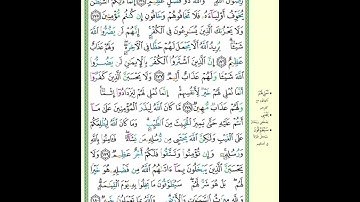 رِضْوَٰنَ ٱللَّهِ وَٱللَّهُ ذُو فَضْلٍ عَظِيمٍ ١٧٤ إِنَّمَا ذَٰلِكُمُ ٱلشَّيْطَٰنُ
يُخَوِّفُ أَوْلِيَآءَهُۥ فَلَا تَخَافُوهُمْ وَخَافُونِ إِن كُنتُم مُّؤْمِنِينَ ١٧٥
وَلَا يَحْزُنكَ ٱلَّذِينَ يُسَٰرِعُونَ فِى ٱلْكُفْرِ إِنَّهُمْ لَن يَضُرُّوا۟ ٱللَّهَ
شَيْـًٔا يُرِيدُ ٱللَّهُ أَلَّا يَجْعَلَ لَهُمْ حَظًّا فِى ٱلْءَاخِرَةِ وَلَهُمْ عَذَابٌ
عَظِيمٌ ١٧٦ إِنَّ ٱلَّذِينَ ٱشْتَرَوُا۟ ٱلْكُفْرَ بِٱلْإِيمَٰنِ لَن يَضُرُّوا۟ ٱللَّهَ
شَيْـًٔا وَلَهُمْ عَذَابٌ أَلِيمٌ ١٧٧ وَلَا يَحْسَبَنَّ ٱلَّذِينَ كَفَرُوٓا۟
أَنَّمَا نُمْلِى لَهُمْ خَيْرٌ لِّأَنفُسِهِمْ إِنَّمَا نُمْلِى لَهُمْ لِيَزْدَادُوٓا۟ إِثْمًا
وَلَهُمْ عَذَابٌ مُّهِينٌ ١٧٨ مَّا كَانَ ٱللَّهُ لِيَذَرَ ٱلْمُؤْمِنِينَ عَلَىٰ مَآ
أَنتُمْ عَلَيْهِ حَتَّىٰ يَمِيزَ ٱلْخَبِيثَ مِنَ ٱلطَّيِّبِ وَمَا كَانَ ٱللَّهُ لِيُطْلِعَكُمْ
عَلَى ٱلْغَيْبِ وَلَٰكِنَّ ٱللَّهَ يَجْتَبِى مِن رُّسُلِهِۦ مَن يَشَآءُ فَـَٔامِنُوا۟ بِٱللَّهِ
وَرُسُلِهِۦ وَإِن تُؤْمِنُوا۟ وَتَتَّقُوا۟ فَلَكُمْ أَجْرٌ عَظِيمٌ ١٧٩ وَلَا
يَحْسَبَنَّ ٱلَّذِينَ يَبْخَلُونَ بِمَآ ءَاتَىٰهُمُ ٱللَّهُ مِن فَضْلِهِۦ هُوَ خَيْرًا
لَّهُم بَلْ هُوَ شَرٌّ لَّهُمْ سَيُطَوَّقُونَ مَا بَخِلُوا۟ بِهِۦ يَوْمَ ٱلْقِيَٰمَةِ